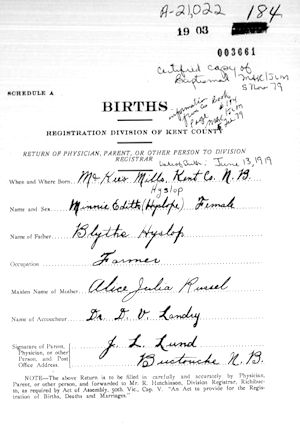 A-21,022 184
1903
003661
certified copy of
Baptismal
5 Nov 79
SCHEDULE A
BIRTHS
information
from Co Book
# 184
Page
REGISTRATION DIVISION OF KENT COUNTY
RETURN OF PHYSICIAN, PARENT, OR OTHER PERSON TO DIVISION
REGISTRAR
June 13, 1919
When and Where Born, McKees Mills, Kent Co. N. B.
Hyslop
Name and Sex, Minnie Edith (Hyslope) Female
Name of Father, Blythe Hyslop
Occupation Farmer
Maiden Name of Mother, Alice Julia Russel
Name of Accoucheur Dr. D. V. Landry
Signature of Parent,
Physician, or other
person, and Post
Office Address.
J. L. Lund
Buctouche N. B.
NOTE—The above Return is to be filled in carefully and accurately by Physician,
Parent, or other person, and forwarded to Mr. R. Hutchinson, Division Registrar, Richibuc-
to, as required by Act of Assembly, 50th Vic., Cap. V. "An Act to provide for the Regis-
tration of Births, Deaths and Marriages."